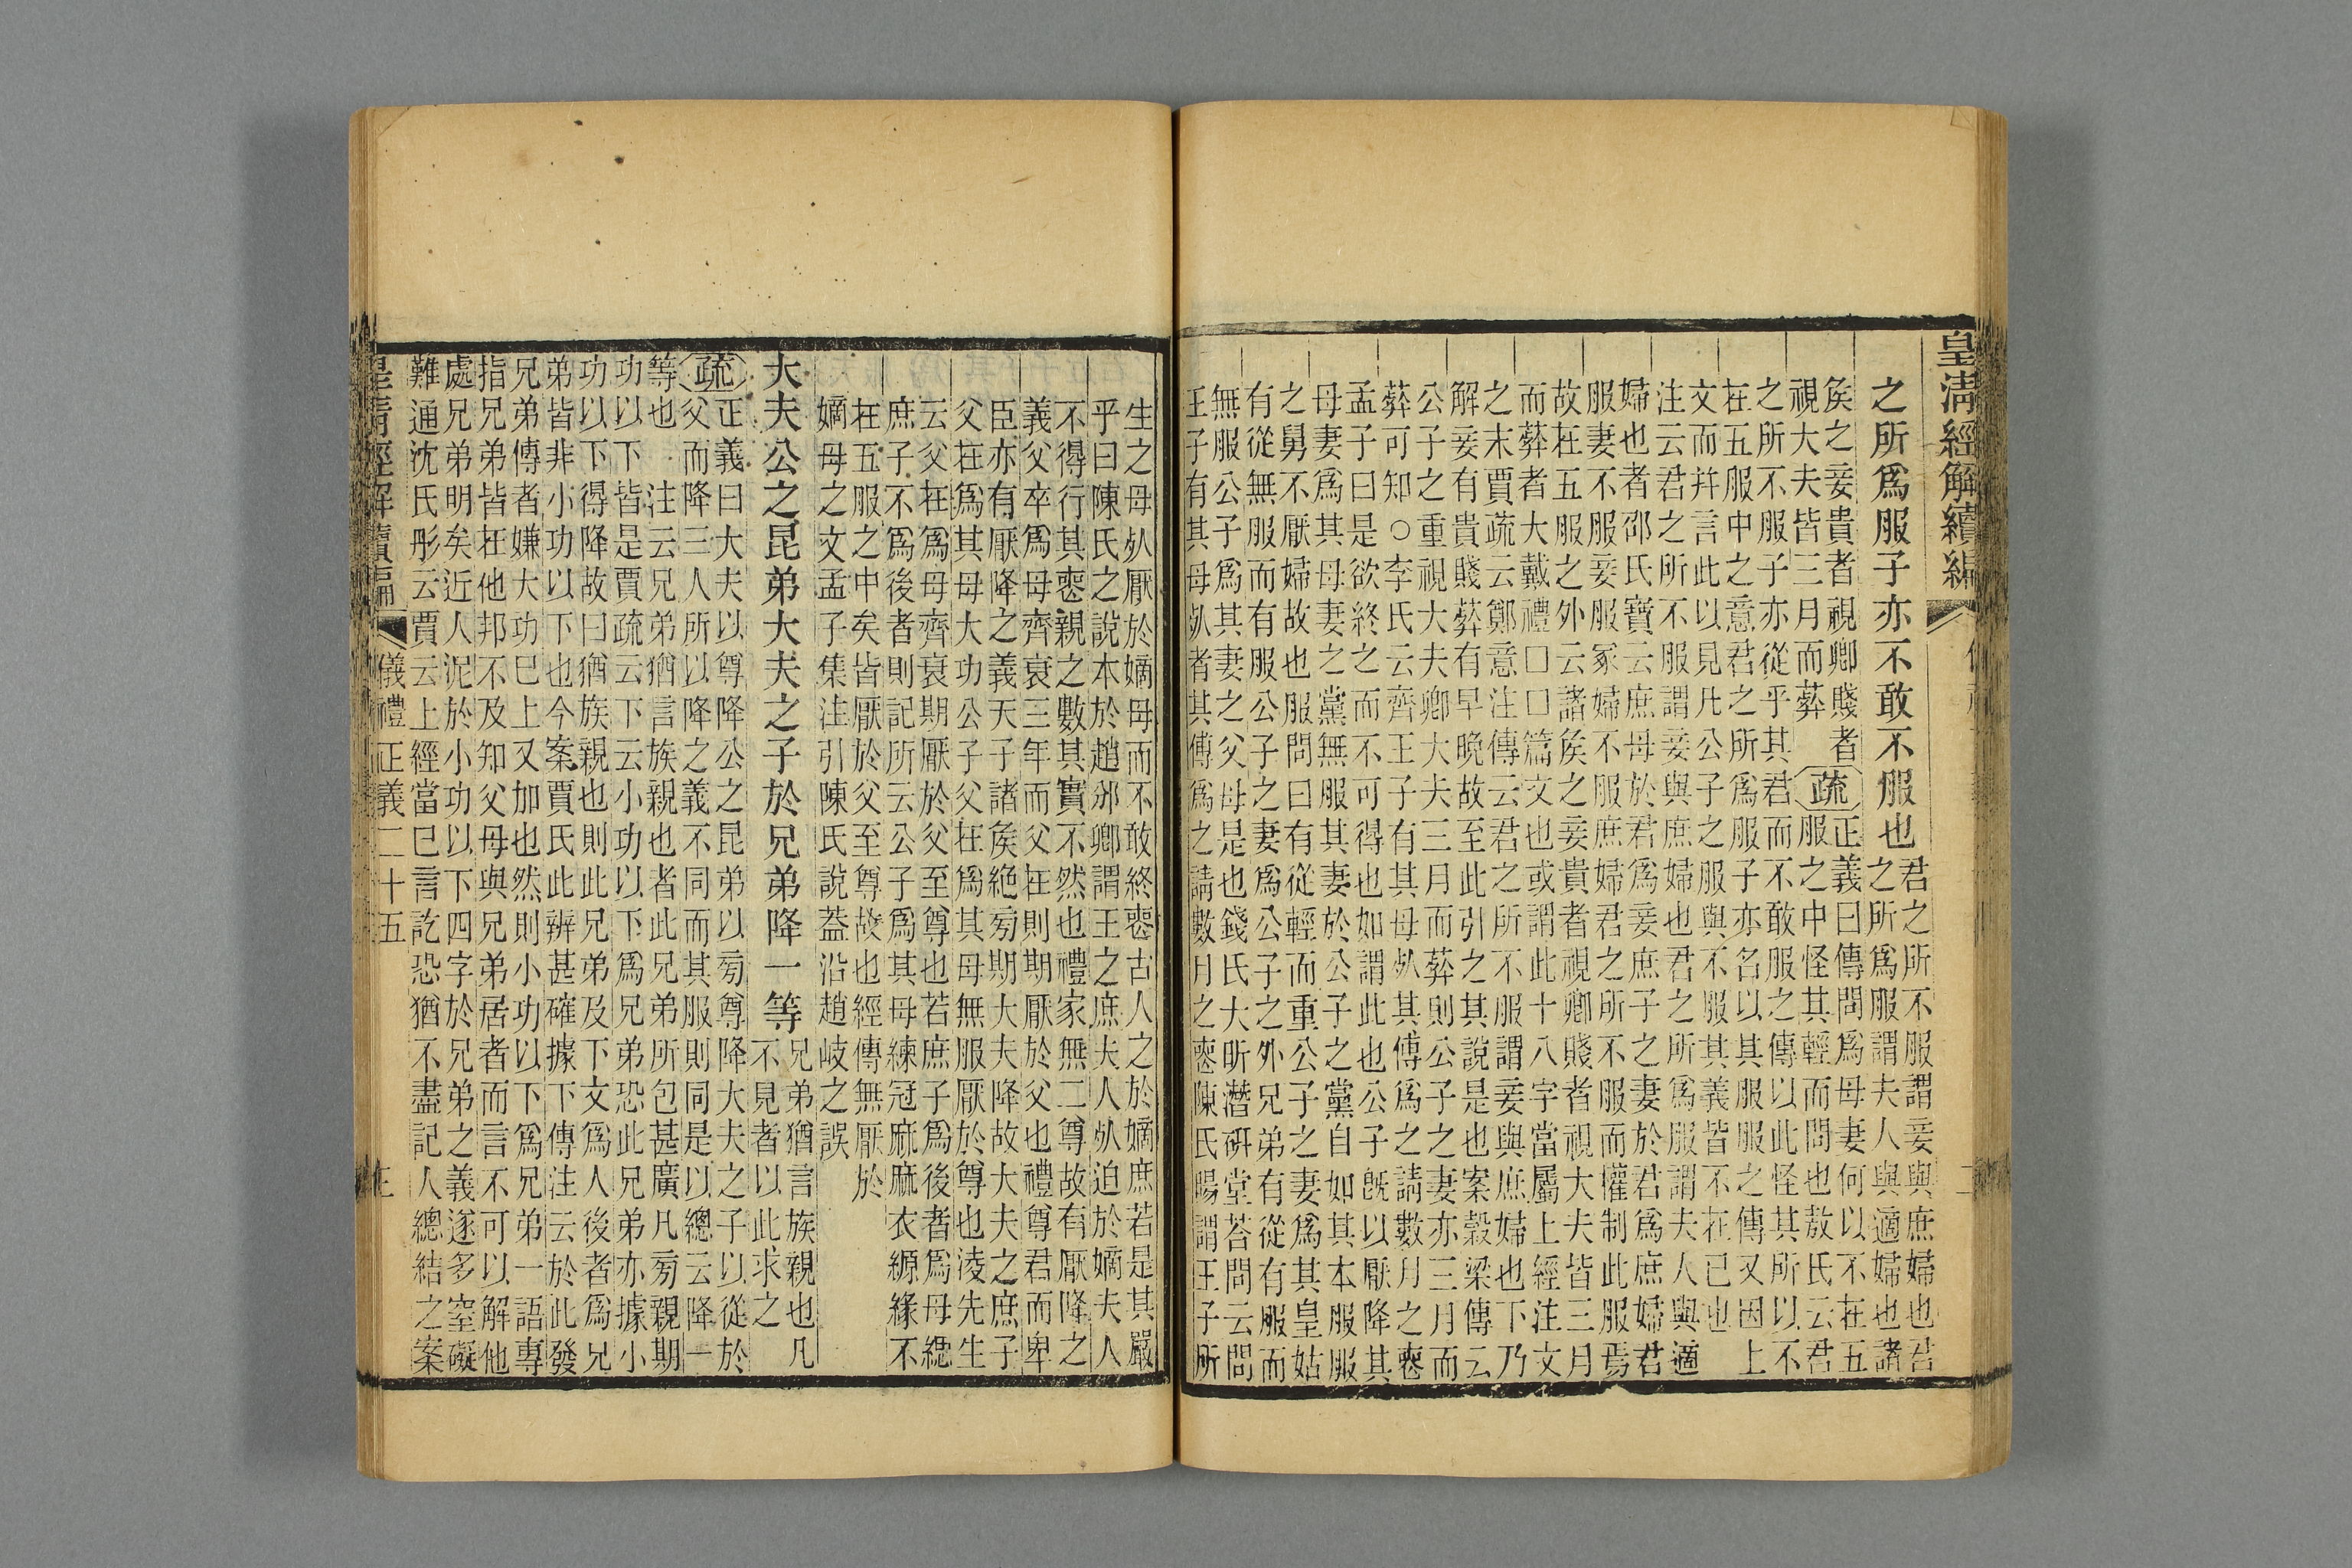 皇清經解續編
之所爲服子亦不敢不服也
君之所不服謂妾與庶婦也君
之所爲服謂夫人與適婦也諸
矦之妾貴者視卿賤者
視大夫皆三月而葬
疏
正義曰傳問爲母妻何以不在五
服之中怪其輕而問也敖氏云君
之所不服子亦從乎其君而不敢服之傳以此怪其所以不
在五服中之意君之所爲服子亦名以其服服之傳又因上
文而幷言此以見凡公子之服與不服其義皆不在已也
注云君之所不服謂妾與庶婦也君之所爲服謂夫人與適
婦也者邵氏寶云庶母於君爲妾庶子之妻於君爲庶婦君
服妻不服妾服冢婦不服庶婦君之所不服而權制此服焉
故在五服之外云諸矦之妾貴者視卿賤者視大夫皆三月
而葬者大戴禮囗囗篇文也或謂此十八字當屬上經注文
之末賈疏云鄭意注傳云君之所不服謂妾與庶婦也下乃
解妾有貴賤葬有早晚故至此引之其說是也案穀梁傳云
公子之重視大夫卿大夫三月而葬則公子之妻亦三月而
葬可知○李氏云齊王子有其母死其傅爲之請數月之喪
孟子曰是欲終之而不可得也如謂此也公子旣以厭降其
母妻爲其母妻之黨無服其妻於公子之黨自如其本服服
之舅不厭婦故也服問曰有從輕而重公子之妻爲其皇姑
有從無服而有服公子之妻爲公子之外兄弟有從有服而
無服公子爲其妻之父母是也錢氏大昕潛硏堂荅問云問
王子有其母死者其傅爲之請數月之喪陳氏暘謂王子所
生之母死厭於嫡母而不敢終喪古人之於嫡庶若是其嚴
乎曰陳氏之說本於趙邠卿謂王之庶夫人死迫於嫡夫人
不得行其喪親之數其實不然也禮家無二尊故有厭降之
義父卒爲母齊衰三年而父在則期厭於父也禮尊君而卑
臣亦有厭降之義天子諸矦絶旁期大夫降故大夫之庶子
父在爲其母大功公子父在爲其母無服厭於尊也淩先生
云父在爲母齊衰期厭於父至尊也若庶子爲後者爲母緦
庶子不爲後者則記所云公子爲其母練冠麻麻衣縓緣不
在五服之中矣皆厭於父至尊故也經傳無厭於
嫡母之文孟子集注引陳氏說葢沿趙岐之誤
大夫公之昆弟大夫之子於兄弟降一等
兄弟猶言族親也凡
不見者以此求之
疏
正義曰大夫以尊降公之昆弟以旁尊降大夫之子以從於
父而降三人所以降之義不同而其服則同是以總云降一
等也 注云兄弟猶言族親也者此兄弟所包甚廣凡旁親期
功以下皆是賈疏云下云小功以下爲兄弟恐此兄弟亦據小
功以下得降故曰猶族親也則此兄弟及下文爲人後者爲兄
弟皆非小功以下也今案賈氏此辨甚確據下傳注云於此發
兄弟傳者嫌大功已上又加也然則小功以下爲兄弟一語專
指兄弟皆在他邦不及知父母與兄弟居者而言不可以解他
處兄弟明矣近人泥於小功以下四字於兄弟之義遂多窒礙
難通沈氏彤云賈云上經當已言訖恐猶不盡記人總結之案
皇清經解續編
儀禮正義二十五